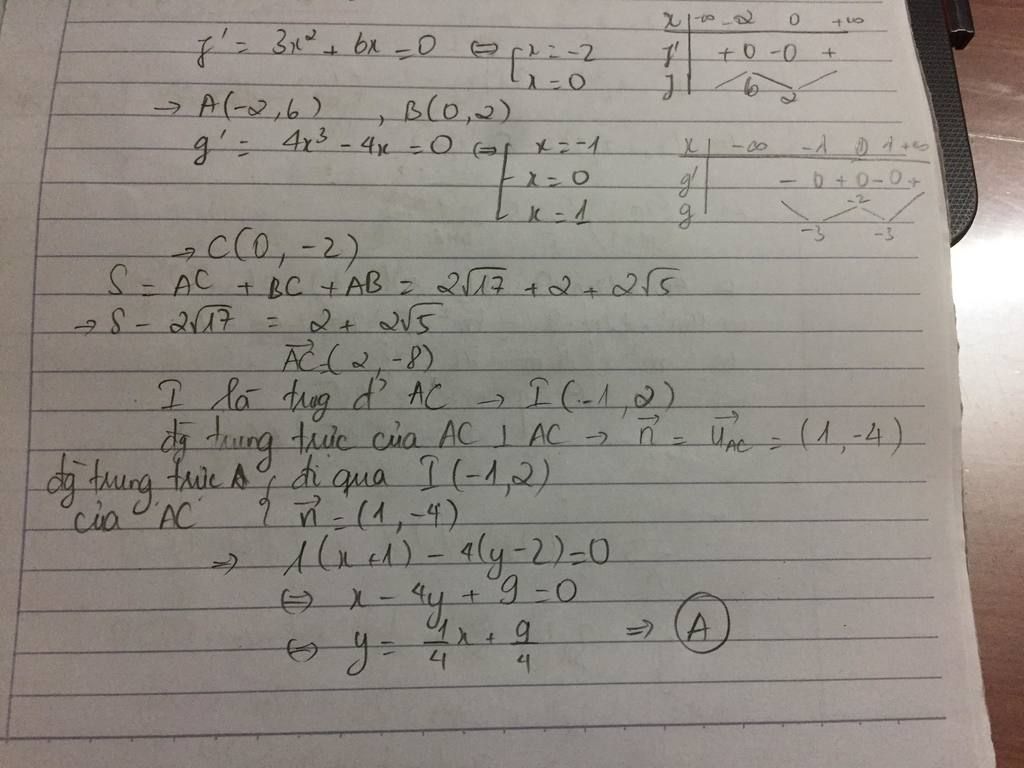 x | -∞ -2 0 +∞
f' = 3x² + 6x = 0 ⇔ [ x = -2
x = 0
f' | + 0 - 0 +
f | 6 2
→ A(-2,6) , B(0,2)
g' = 4x³ - 4x = 0 ⇔ [ x = -1
x = 0
x = 1
x | -∞ -1 0 1 +∞
g' | - 0 + 0 - 0 +
g | -3 -2 -3
→ C(0, -2)
S = AC + BC + AB = 2√17 + 2 + 2√5
→ S - 2√17 = 2 + 2√5
AC→ (2, -8)
I là trug đ' AC → I(-1,2)
đg trung trực của AC ⊥ AC → n→ = u→AC = (1, -4)
đg trung trực { đi qua I(-1,2)
của AC { n→ = (1, -4)
⇒ 1(x+1) - 4(y-2) = 0
⇔ x - 4y + 9 = 0
⇔ y = 1/4 x + 9/4 ⇒ A